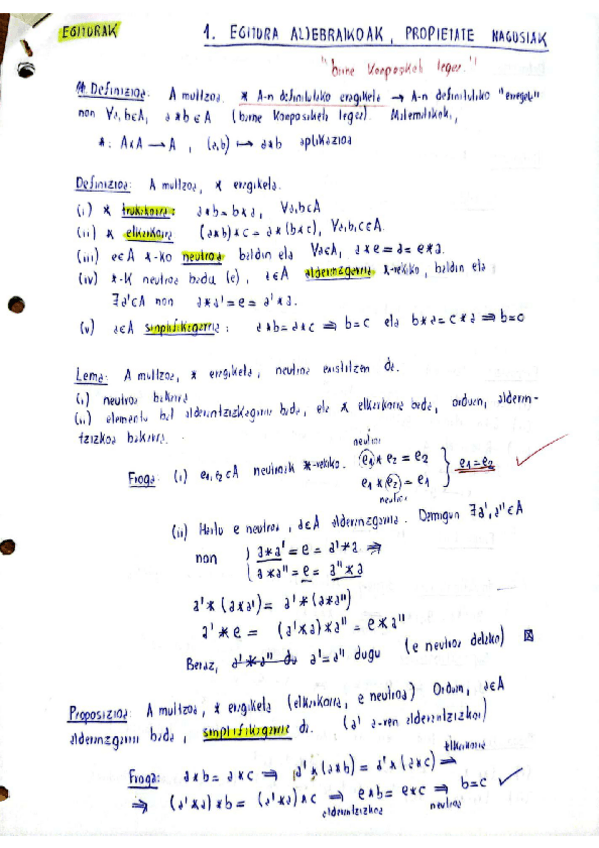 EGITURAK
1. EGITURA ALJEBRAIKOAK, PROPIETATE NAGUSIAK
"barne konposaketa legea."
Definizioa: A multzoa. * A-n definituriko eragiketa → A-n definituriko "erregela"
non ∀a,b∈A, a*b∈A (barne konposaketa legea). Matematikoki,
*: A×A → A, (a,b) ↦ a*b aplikazioa
Definizioa: A multzoa, * eragiketa.
(i) * trukakorra: a*b = b*a, ∀a,b∈A
(ii) * elkarkorra (a*b)*c = a*(b*c), ∀a,b,c∈A.
(iii) e∈A *-ko neutroa baldin eta ∀a∈A, a*e = a = e*a.
(iv) *-k neutroa badu (e), a∈A alderanzgarria *-rekiko, baldin eta
∃a'∈A non a*a' = e = a'*a.
(v) a∈A sinplifikagarria: a*b = a*c ⇒ b=c eta b*a = c*a ⇒ b=c
Lema: A multzoa, * eragiketa, neutroa existitzen da.
(i) neutroa bakarra
(ii) elementu bat alderantzizkagarria bada, eta * elkarkorra bada, orduan, alderan-
tzizkoa bakarra.
neutroa
Froga: (i) e1, e2∈A neutroak *-rekiko. e1 * e2 = e2
e1 * e2 = e1 } e1 = e2 ✓
neutroa
(ii) Har e neutroa, a∈A alderanzgarria. Demagun ∃a', a''∈A
non { a*a' = e = a'*a ⇒
{ a*a'' = e = a''*a
a'*(a*a') = a'*(a*a'')
a'*e = (a'*a)*a'' = e*a''
Beraz, a'*a'' da a' = a'' dugu (e neutroa delako) ☒
Proposizioa: A multzoa, * eragiketa (elkarkorra, e neutroa) Orduan, a∈A
alderanzgarria bada, sinplifikagarria da. (a' a-ren alderantzizkoa)
elkarkorra
Froga: a*b = a*c ⇒ a'*(a*b) = a'*(a*c) ⇒
⇒ (a'*a)*b = (a'*a)*c ⇒ e*b = e*c ⇒ b=c ✓
alderantzizkoa neutroa